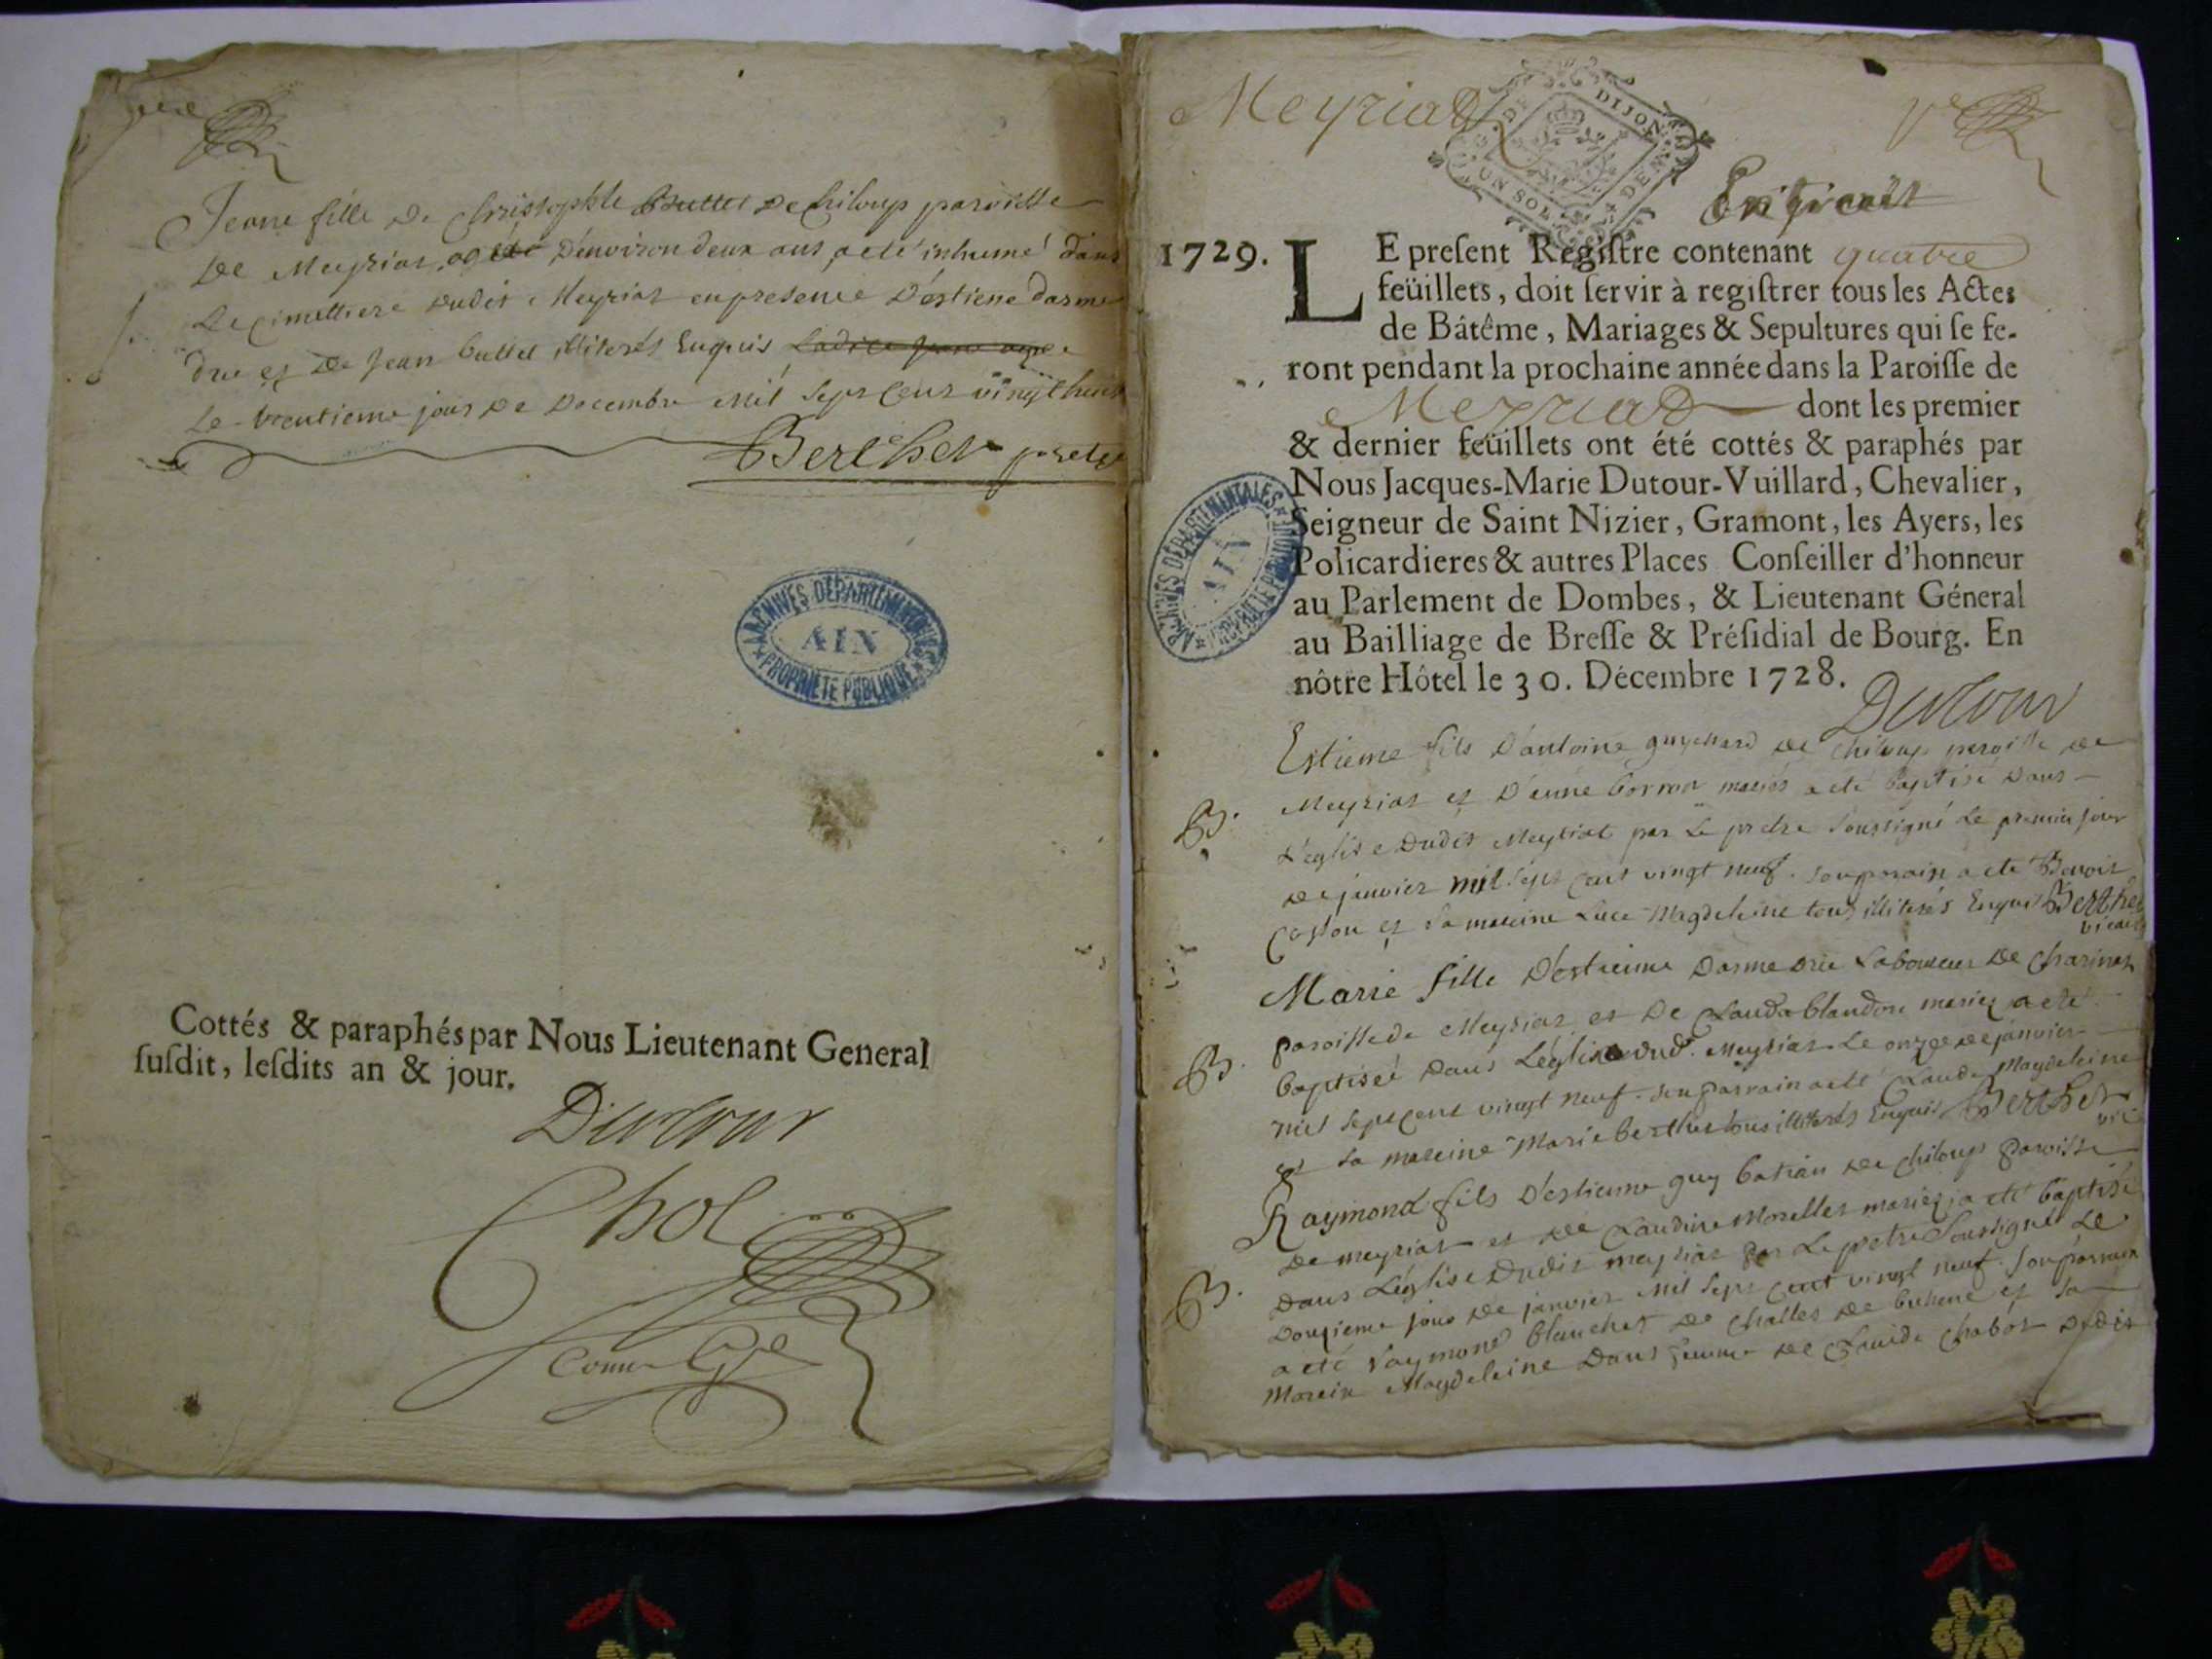 Jeane fille de Christophle Buttet de Chiloup paroisse
de Meyriat agée d'environ deux ans a eté inhumé dans
Le cimettiere dudit Meyriat en presence d'estiene darme
drie et de Jean buttet illiterés Enquis
Le trentieme jour de decembre mil sept cens vingt huit
Berthet pretre
ARCHIVES DÉPARTEMENTALES
AIN
PROPRIÉTÉ PUBLIQUE
Cottés & paraphés par Nous Lieutenant General
ſuſdit, leſdits an & jour.
Dutour
Chol
Meyriat
DIJON
UN SOL
DEN
Extrait
1729. LE preſent Regiſtre contenant quatre
feüillets, doit ſervir à regiſtrer tous les Actes
de Bátême, Mariages & Sepultures qui ſe fe-
ront pendant la prochaine année dans la Paroiſſe de
Meyriat dont les premier
& dernier feüillets ont été cottés & paraphés par
Nous Jacques-Marie Dutour-Vuillard, Chevalier,
Seigneur de Saint Nizier, Gramont, les Ayers, les
Policardieres & autres Places Conſeiller d'honneur
au Parlement de Dombes, & Lieutenant Géneral
au Bailliage de Breſſe & Préſidial de Bourg. En
nôtre Hôtel le 30. Décembre 1728.
Dutour
ARCHIVES DÉPARTEMENTALES
AIN
PROPRIÉTÉ PUBLIQUE
Estiene fils d'antoine guichard de Chiloup paroisse de
B. Meyriat et d'eune borron mariés a eté baptisé dans
L'eglise dudit Meyriat par Le pretre soussigné Le premier jour
de janvier mil sept cent vingt neuf. son parain a eté Benoit
et sa mareine Luce Magdeleine tous illiterés Enquis Berthet
vicaire
Marie fille d'estienne darme drie Laboureur de Charinas
paroisse de Meyriat et de Clauda blandon mariez a eté
B. baptiseé dans Léglise dud. Meyriat Le onze de janvier
mil sept cent vingt neuf. son parrain a eté Claude Magdeleine
et sa mareine Marie berthet tous illiterés Enquis Berthet
vic
Raymond fils d'estienne guy batian de Chiloup paroisse
de meyriat et de Claudine Morellet mariez a eté baptisé
B. dans L'église dudit meyriat par Le pretre soussigné Le
douzieme jour de janvier mil sept cent vingt neuf. son parrain
a eté Raymond blanchet de Challes de bohene et sa
mareine Magdeleine Dans femme de Claude Chabot dudit